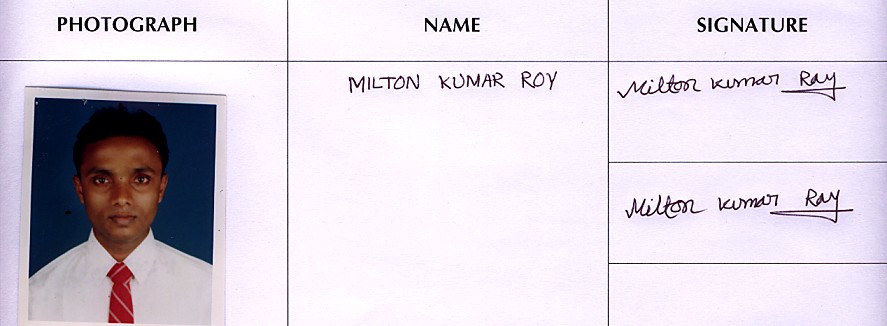 PHOTOGRAPH NAME SIGNATURE
MILTON KUMAR ROY Milton Kumar Ray
Milton Kumar Ray